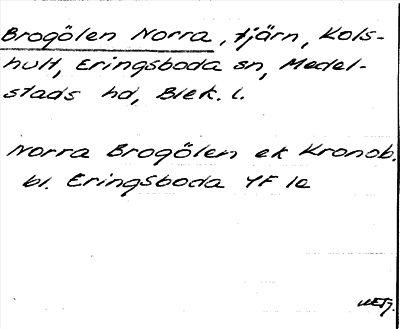 Brogölen Norra, tjärn, Kols-
hult, Eringsboda sn, Medel-
stads hd, Blek. l.
Norra Brogölen ek Kronob.
bl. Eringsboda 4F 1e